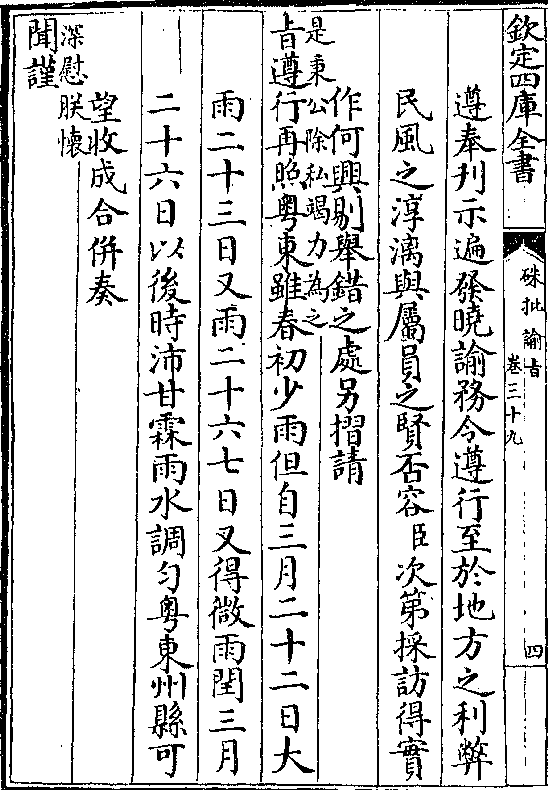 欽定四庫全書
硃批諭旨
卷三十九
四
遵奉刋示遍發曉諭務令遵行至於地方之利弊
民風之淳漓與屬員之賢否容臣次第採訪得實
作何興剔舉錯之處另摺請
是秉公除私竭力為之
旨遵行再照粤東雖春初少雨但自三月二十二日大
雨二十三日又雨二十六七日又得微雨閏三月
二十六日以後時沛甘霖雨水調匀粤東州縣可
望收成合併奏
深慰朕懷
聞謹